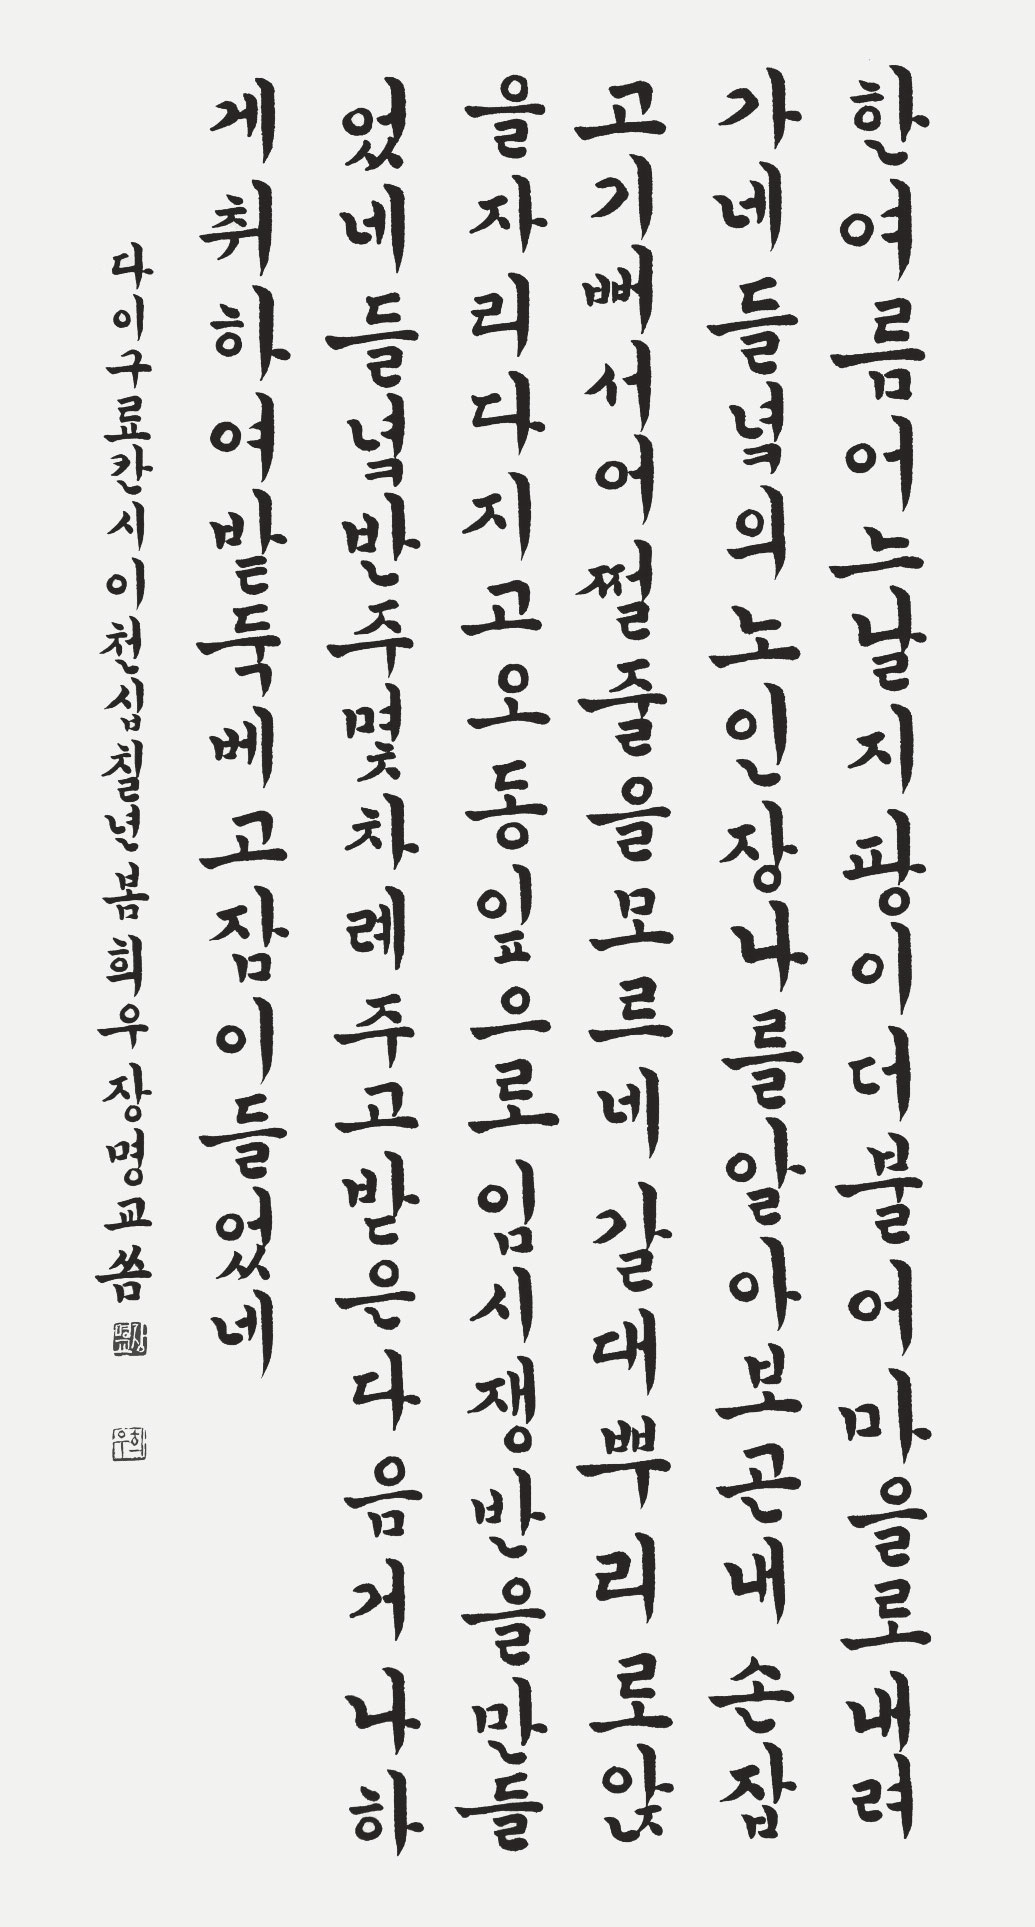 한여름어느날지팡이더불어마을로내려
가네들녘의노인장나를알아보곤내손잡
고기뻐서어쩔줄을모르네갈대뿌리로앉
을자리다지고오동잎으로임시쟁반을만들
었네들녘반주몇차례주고받은다음거나하
게취하여밭둑베고잠이들었네
다이구료칸시이천십칠년봄희우장명교씀
희우